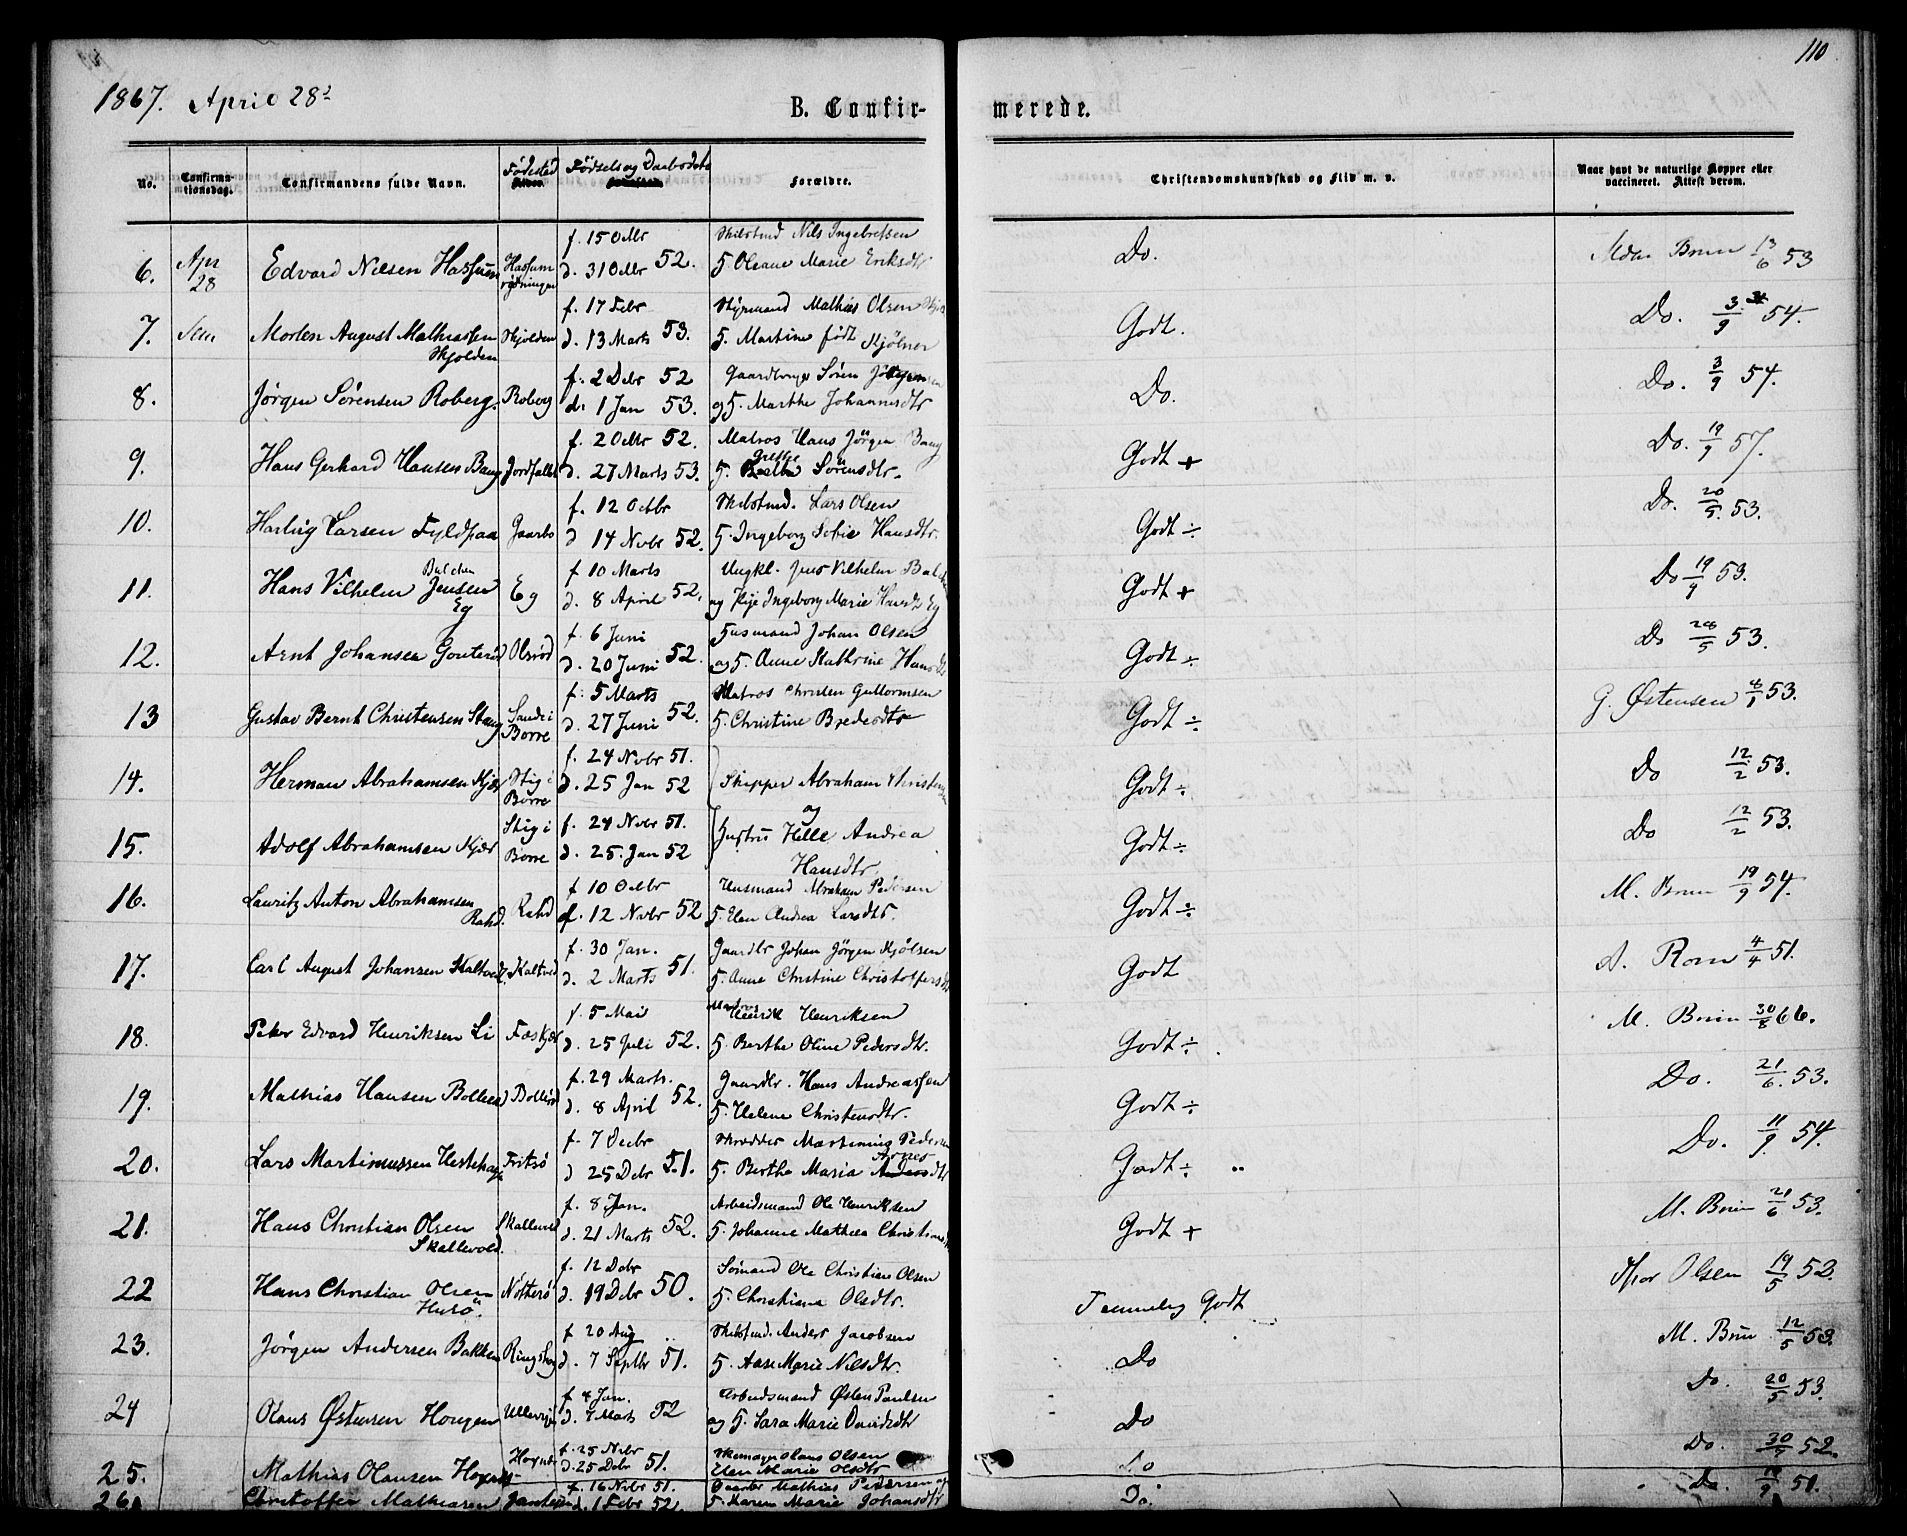 110
1867. April 28
B. Confirmerede.
No. Confirmationsdag. Confirmandens fulde Navn. Fødested Fødsels og Daabsdato Forældre. Christendomskundskab og Flid m. v. Naar havt de naturlige Kopper eller vaccineret. Attest derom.
6. Apr 28 Edvard Nilsen Hassum Hassum f. 15 Octbr d. 31 Octbr 52. Nils Ingebretsen
H. Olsane Marie Eriksdtr Do. 13/6 53
7. Sem Morten August Mathiassen Skjolden Skjolden f. 17 Febr d. 13 Marts 53. Styrmand Mathias Olsen
H. Martine født Kjølner Godt. Do. 54.
8. Jørgen Sørensen Roberg. Roberg f. 2 Debr 52 d. 1 Jan 53. Søren
og H. Marthe Johannesdtr Do. Do. 3/9 54.
9. Hans Gerhard Hansen Bang Jordfaldet f. 2 Octbr 52. d. 27 Marts 53. Matros Hans Jørgen Bang
H. Grethe Sørensdtr. Godt + Do. 57.
10. Larsen Fyldpaa Gaarbo f. 12 Octbr d. 14 Novbr 52. Lars Olsen
H. Ingeborg Sofie Hansdtr. Godt ÷ Do. 20/5. 53.
11. Hans Vilhelm Balchen Jensen Eg Eg f. 10 Marts d. 8 April 52. Ungkl. Jens Vilhelm
og Pige Ingeborg Marie Hansdtr Eg Godt + Do 53.
12. Arnt Johansen Olsrød f. 6 Juni d. 20 Juni 52. Husmand Johan Olsen
og H. Anne Kathrine Godt ÷ Do 28/5 53.
13 Gustav Bernt Christensen Stang Sande i Borre f. 5 Marts d. 27 Juni 52. Matros Christen Guttormsen
H. Christine Bredesdtr Godt ÷ G. Østensen 8/1 53.
14. Herman Abrahamsen Kjær Stig i Borre f. 24 Novbr 51. d. 25 Jan 52 Skipper Abraham Christensen
og Godt ÷ Do 12/2 53.
15. Adolf Abrahamsen Kjær Stig i Borre f. 24 Novbr 51. d. 25. Jan 52 Hustru Helle Andrea
Hansdtr. Godt ÷ Do 12/2 53.
16. Lauritz Anton Abrahamsen Rakd. f. 10 Octbr d. 12 Novbr 52 Husmand Abraham Pedersen
H. Elen Andrea Larsdtr. Godt ÷ M. Brun 19/9 54.
17. Carl August Johansen Kaltved f. 30 Jan. d. 2 Marts 51. Gaardbr Johan Jørgen Kjølsen
H. Anne Christine Christoffersdtr Godt A. Rom 4/4 51.
18. Peter Edvard Henriksen Li f. 5 Mai d. 25 Juli 52. Matros Henrik Henriksen
H. Berthe Oline Pedersdtr. Godt ÷ M. Brun 30/8 66.
19. Mathias Hansen f. 29 Marts. d. 8 April 52. Gaardbr. Hans Andreassen
H. Helene Christensdtr. Godt ÷ Do. 21/6. 53.
20. Lars Martinussen Hestehage Fritsø f. 7 Decbr d 25 Debr 51. Skrædder Martinius Pedersen
H. Berthe Maria Arnesdtr Godt ÷ Do. 11/9 54.
21. Hans Christian Olsen Skallevold. Skallevold f. 8 Jan. d. 21 Marts 52. Arbeidsmand Ole Henriksen
H. Johanne Mathea Godt + M. Brun 21/6 53.
22 Hans Christian Olsen Husø Nøtterø f. 12 Debr d. 19 Debr 50. Sømand Ole Christian Olsen
H. Christiane Olsdtr. Temmelig Godt Olsen 19/5 52.
23. Jørgen Andersen Bakken Ringshoug f 20 Aug d. 7 Septbr 51. Anders Jacobsen
H. Aase Marie Nilsdtr. Do M. Brun 12/5 53.
24 Hans Østensen Hougen f. 4 Jan. d. 7 Marts 52 Arbeidsmand Østen Paulsen
og H. Sara Marie Davidsdtr Do Do. 20/5 53.
25. Mathias Hansen f. 25 Nvbr d. 25 Debr 51. Hans Olsen
Elen Marie Olsdtr Do Do. 52.
26. Christoffer Mathiasen f. 16 Novbr 51. d. 1 Febr 52. Gaardbr Mathias Pedersen og
H. Karen Marie Johansdtr Do. Do. 51.